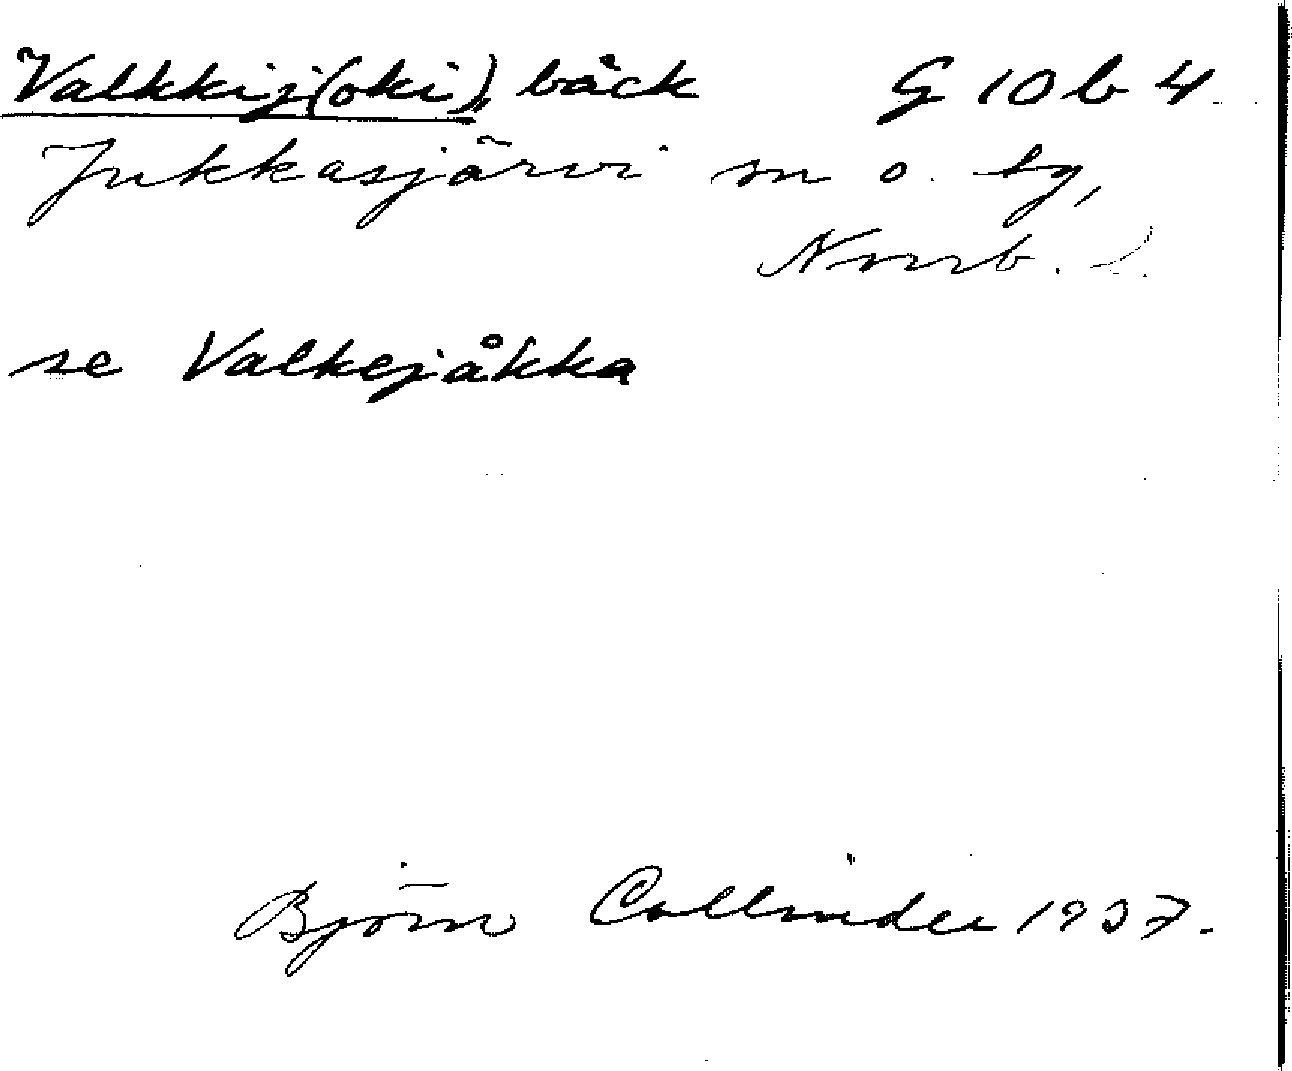 Valkkij(oki), bäck G 10 b 4
Jukkasjärvi sn o. tg,
Norrb. l.
se Valkejåkka
Björn Collinder 1937.